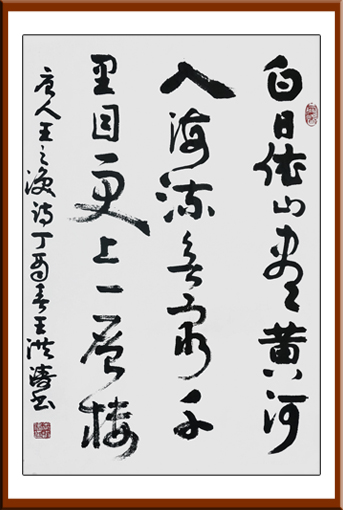 白日依山尽黄河
入海流欲穷千
里目更上一层楼
唐人王之涣诗丁酉春王洪涛书